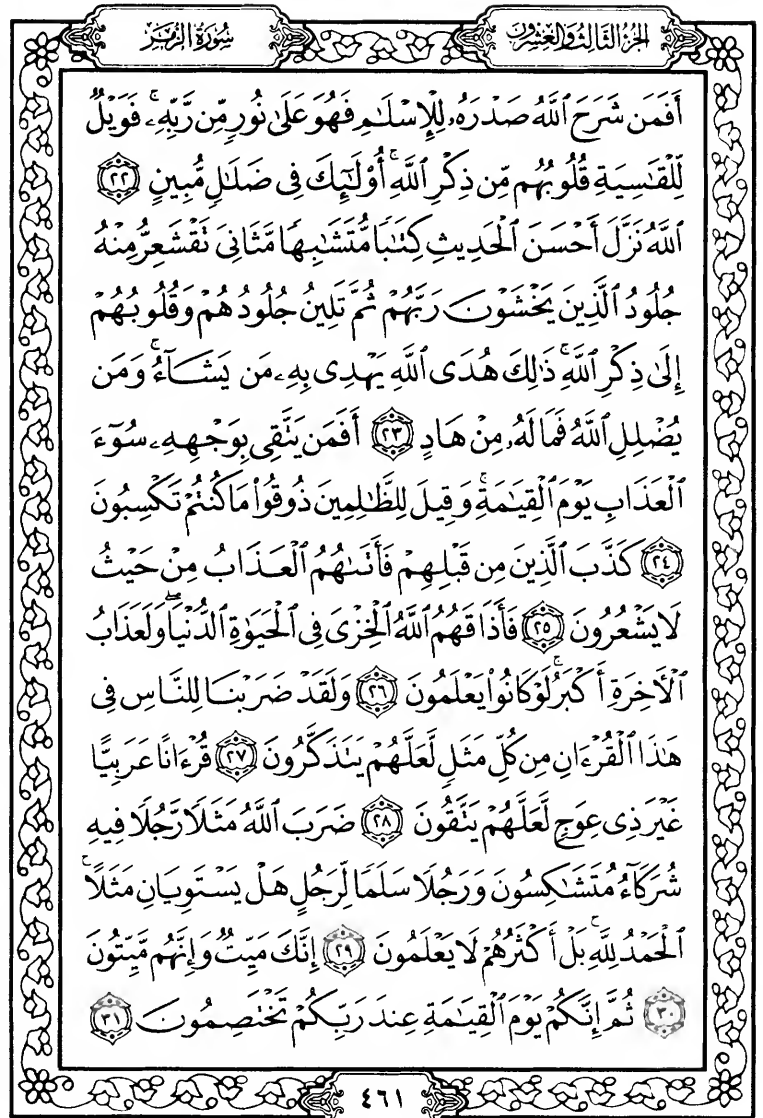 الجزء الثالث والعشرون سورة الزمر
أَفَمَن شَرَحَ ٱللَّهُ صَدْرَهُۥ لِلْإِسْلَٰمِ فَهُوَ عَلَىٰ نُورٍ مِّن رَّبِّهِۦ ۚ فَوَيْلٌ
لِّلْقَٰسِيَةِ قُلُوبُهُم مِّن ذِكْرِ ٱللَّهِ ۚ أُو۟لَٰٓئِكَ فِى ضَلَٰلٍ مُّبِينٍ ٢٢
ٱللَّهُ نَزَّلَ أَحْسَنَ ٱلْحَدِيثِ كِتَٰبًا مُّتَشَٰبِهًا مَّثَانِىَ تَقْشَعِرُّ مِنْهُ
جُلُودُ ٱلَّذِينَ يَخْشَوْنَ رَبَّهُمْ ثُمَّ تَلِينُ جُلُودُهُمْ وَقُلُوبُهُمْ
إِلَىٰ ذِكْرِ ٱللَّهِ ۚ ذَٰلِكَ هُدَى ٱللَّهِ يَهْدِى بِهِۦ مَن يَشَآءُ ۚ وَمَن
يُضْلِلِ ٱللَّهُ فَمَا لَهُۥ مِنْ هَادٍ ٢٣ أَفَمَن يَتَّقِى بِوَجْهِهِۦ سُوٓءَ
ٱلْعَذَابِ يَوْمَ ٱلْقِيَٰمَةِ ۚ وَقِيلَ لِلظَّٰلِمِينَ ذُوقُوا۟ مَا كُنتُمْ تَكْسِبُونَ
٢٤ كَذَّبَ ٱلَّذِينَ مِن قَبْلِهِمْ فَأَتَىٰهُمُ ٱلْعَذَابُ مِنْ حَيْثُ
لَا يَشْعُرُونَ ٢٥ فَأَذَاقَهُمُ ٱللَّهُ ٱلْخِزْىَ فِى ٱلْحَيَوٰةِ ٱلدُّنْيَا ۖ وَلَعَذَابُ
ٱلْءَاخِرَةِ أَكْبَرُ ۚ لَوْ كَانُوا۟ يَعْلَمُونَ ٢٦ وَلَقَدْ ضَرَبْنَا لِلنَّاسِ فِى
هَٰذَا ٱلْقُرْءَانِ مِن كُلِّ مَثَلٍ لَّعَلَّهُمْ يَتَذَكَّرُونَ ٢٧ قُرْءَانًا عَرَبِيًّا
غَيْرَ ذِى عِوَجٍ لَّعَلَّهُمْ يَتَّقُونَ ٢٨ ضَرَبَ ٱللَّهُ مَثَلًا رَّجُلًا فِيهِ
شُرَكَآءُ مُتَشَٰكِسُونَ وَرَجُلًا سَلَمًا لِّرَجُلٍ هَلْ يَسْتَوِيَانِ مَثَلًا ۚ
ٱلْحَمْدُ لِلَّهِ ۚ بَلْ أَكْثَرُهُمْ لَا يَعْلَمُونَ ٢٩ إِنَّكَ مَيِّتٌ وَإِنَّهُم مَّيِّتُونَ
٣٠ ثُمَّ إِنَّكُمْ يَوْمَ ٱلْقِيَٰمَةِ عِندَ رَبِّكُمْ تَخْتَصِمُونَ ٣١
٤٦١